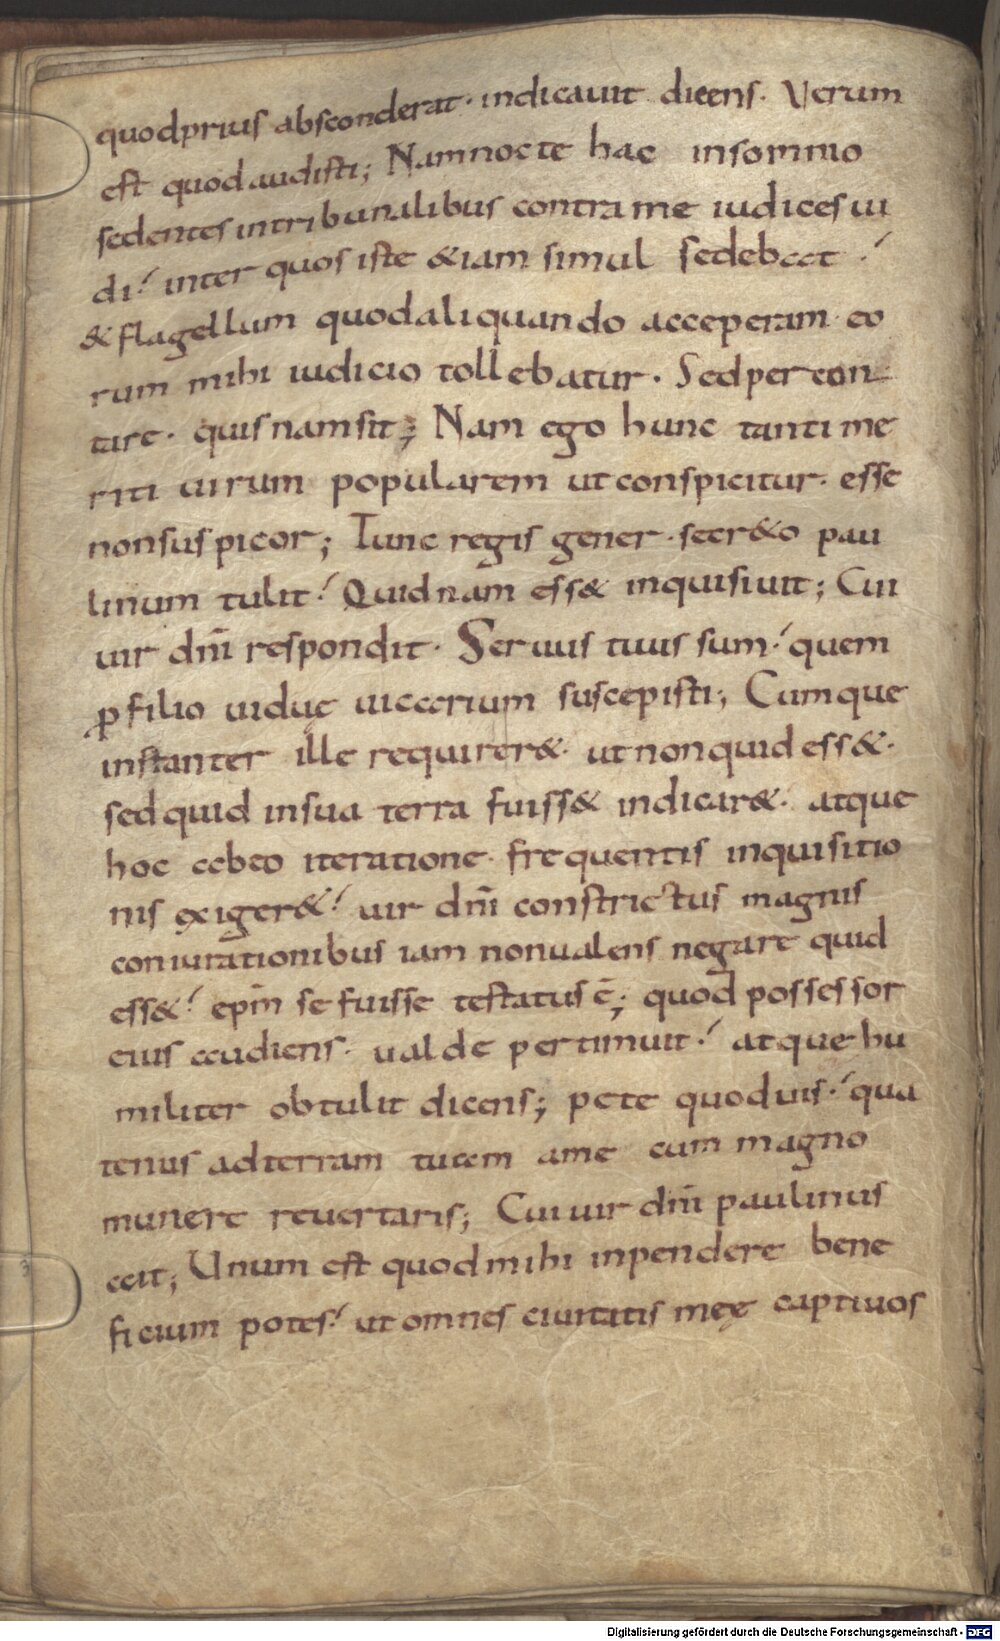 quodprius absconderat· indicauit dicens· Verum
est quod audisti; Nam nocte hac insomnio
sedentes intribunalibus contra me iudices ui
di. inter quos iste &iam simul sedebat
& flagellum quod aliquando acceperam· eo
rum mihi iudicio tollebatur. Sed percon
tare· quis nam sit; Nam ego hunc tanti me
riti uirum popularem ut conspicitur· esse
non suspicor; Tunc regis gener· secr&o pau
linum tulit. Quid nam ess& inquisiuit; Cui
uir dn̄i respondit· Seruus tuus sum· quem
ꝓ filio uiduę uicarium suscepisti; Cumque
instanter ille requirer&· ut non quid ess&·
sed quid insua terra fuiss& indicar&· atque
hoc ab eo iteratione· frequentis inquisitio
nis exiger&. uir dn̄i constrictus magnis
coniurationibus iam non ualens negare quid
ess&. epm̄ se fuisse testatus ē; quod possessor
eius audiens· ualde pertimuit. atque hu
militer obtulit dicens; pete quod uis· qua
tenus ad terram tuam a me cum magno
munere reuertaris; Cui uir dn̄i paulinus
ait; Unum est quod mihi inpendere bene
ficium potes. ut omnes ciuitatis meę captiuos
Digitalisierung gefördert durch die Deutsche Forschungsgemeinschaft - DFG